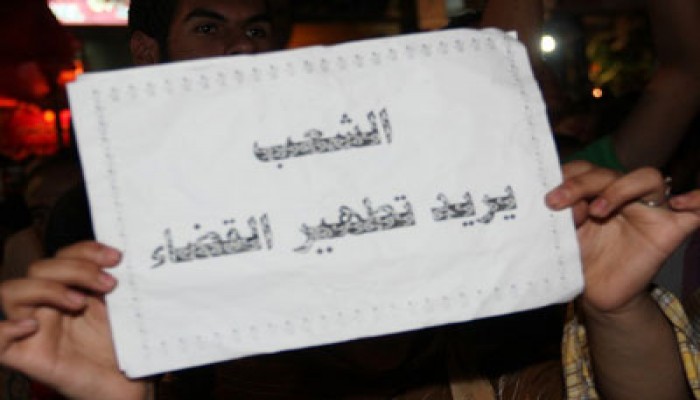 الشعب
يريد تطهير القضاء